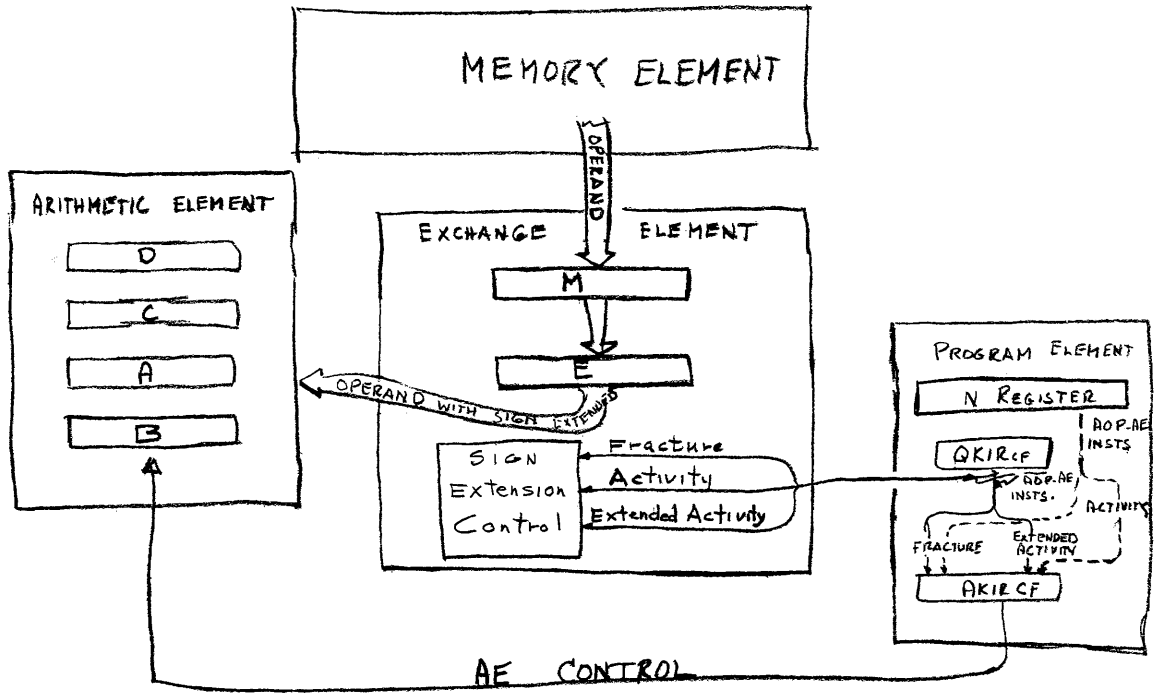 MEMORY ELEMENT
OPERAND
ARITHMETIC ELEMENT
D
C
A
B
EXCHANGE ELEMENT
M
E
OPERAND WITH SIGN EXTENDED
SIGN
Extension
Control
Fracture
Activity
Extended Activity
PROGRAM ELEMENT
N REGISTER
AOP-AE
INSTS
QKIRCF
AOP-AE
INSTS.
ACTIVITY
FRACTURE
EXTENDED
ACTIVITY
AKIRCF
AE CONTROL